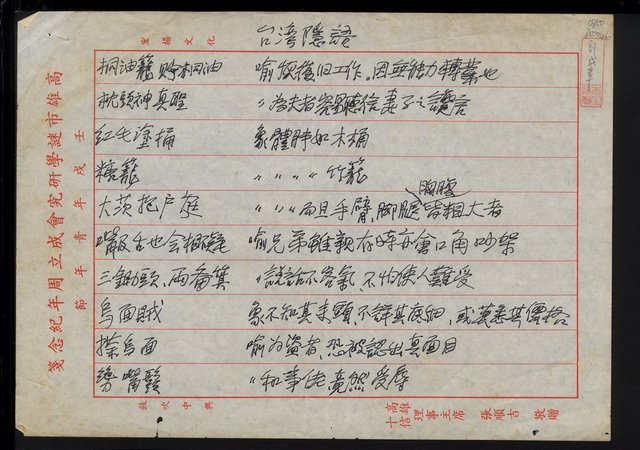 台湾隱語
宏揚文化
桐油籠貯桐油 喻恢復旧工作。因無能力轉業也
枕頭神真聖 〃為夫者容易聽信妻子之讒言
紅毛塗桶 象體胖如木桶
糖籠 〃〃〃〃竹籠
大茨抱戶庭 〃〃〃而且手臂,腳腿胸腹皆粗大者
嘴及舌也会相碰 喻兄弟雖親有時亦會口角吵架
三鋤頭,兩畚箕 〃說話不客氣,不怕使人難受
烏面賊 象不知其來頭,不詳其底細,或
搽烏面 喻為盜者,恐被認出真面目
嘴鬚 〃和事佬竟然受辱
高雄市謎學研究會成立周年紀念箋
壬戌年青年節
鼓吹中興
高雄十信理事主席 張順吉 敬贈